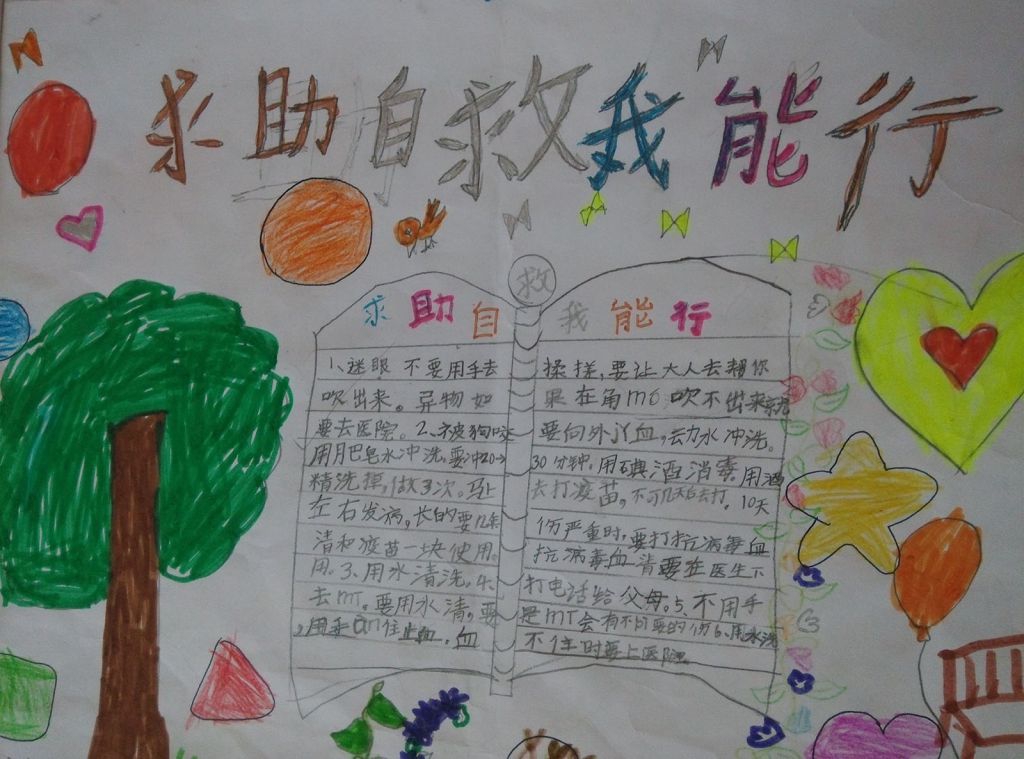 求助自救我能行
救
求助自 我能行
1、迷眼 不要用手去
吹出来。异物如
要去医院。2、被狗咬
用肥皂水冲洗,要冲20→
精洗掉,做3次。马上
左右发病,长的要几年
清和疫苗一块使用
用.3、用水清洗,4、
去mT。要用水清,要
住止血,血
揉搓,要让大人去帮你
果在角mo吹不出来就
要向外丫血,动水冲洗。
30分钟。用碘酒消毒.用酒
去打疫苗,不可几天后去打。10天
伤严重时,要打抗病毒血
抗病毒血清要在医生下
打电话给父母。5、不用手
是mT会有不可要的伤6、用水洗
不住时要上医院